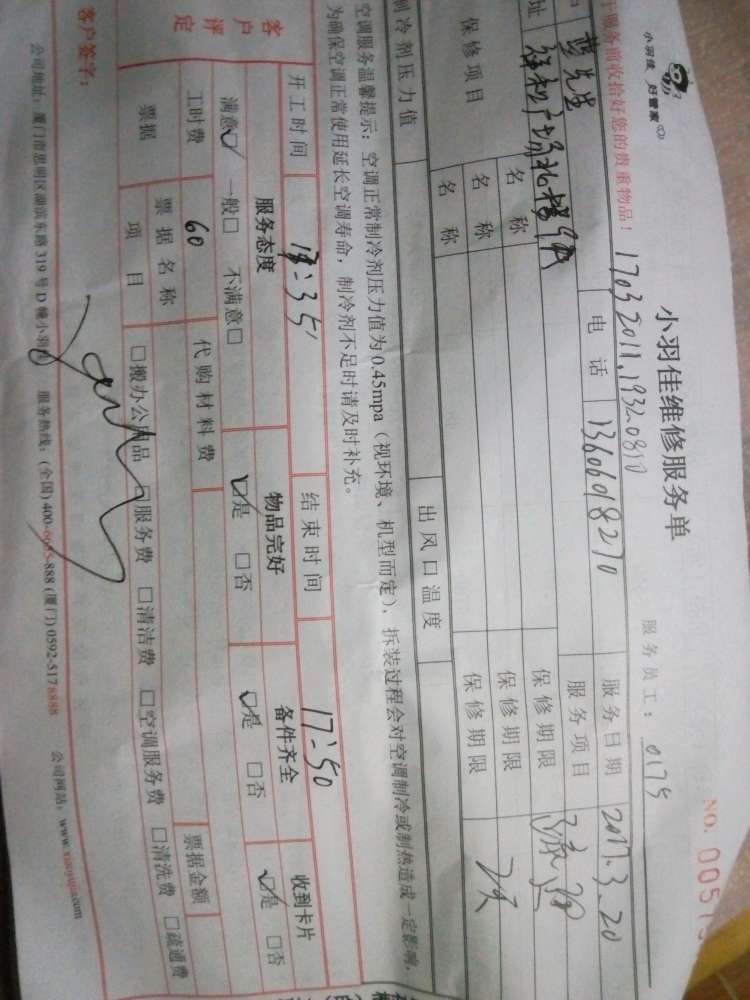 小羽佳 归管家
小羽佳维修服务单
NO. 0057
服务前收拾好您的贵重物品！
170320111.19320810
服务员工：0175
先生
电话
13606018270
服务日期
2017.3.20
址
服务项目
疏通
保修项目
名称
保修期限
名称
保修期限
7天
名称
保修期限
制冷剂压力值
出风口温度
空调服务温馨提示：空调正常制冷剂压力值为0.45mpa（视环境、机型而定），拆装过程会对空调制冷或制热造成一定影响，
为确保空调正常使用延长空调寿命，制冷剂不足时请及时补充。
开工时间
17:35
结束时间
17:50
客户评定
服务态度
物品完好
备件齐全
收到卡片
满意☑ 一般□ 不满意□
☑是 □否
☑是 □否
☑是 □否
工时费
60
代购材料费
票据
票据名称
票据金额
项目
□搬办公用品 □服务费 □清洁费 □空调服务费 □清洗费 □疏通费
客户签字：
公司地址：厦门市思明区湖滨东路319号D幢小羽佳 服务热线：(全国)400-6095-888 (厦门)0592-5178888 公司网站：www.xiaoyujia.com